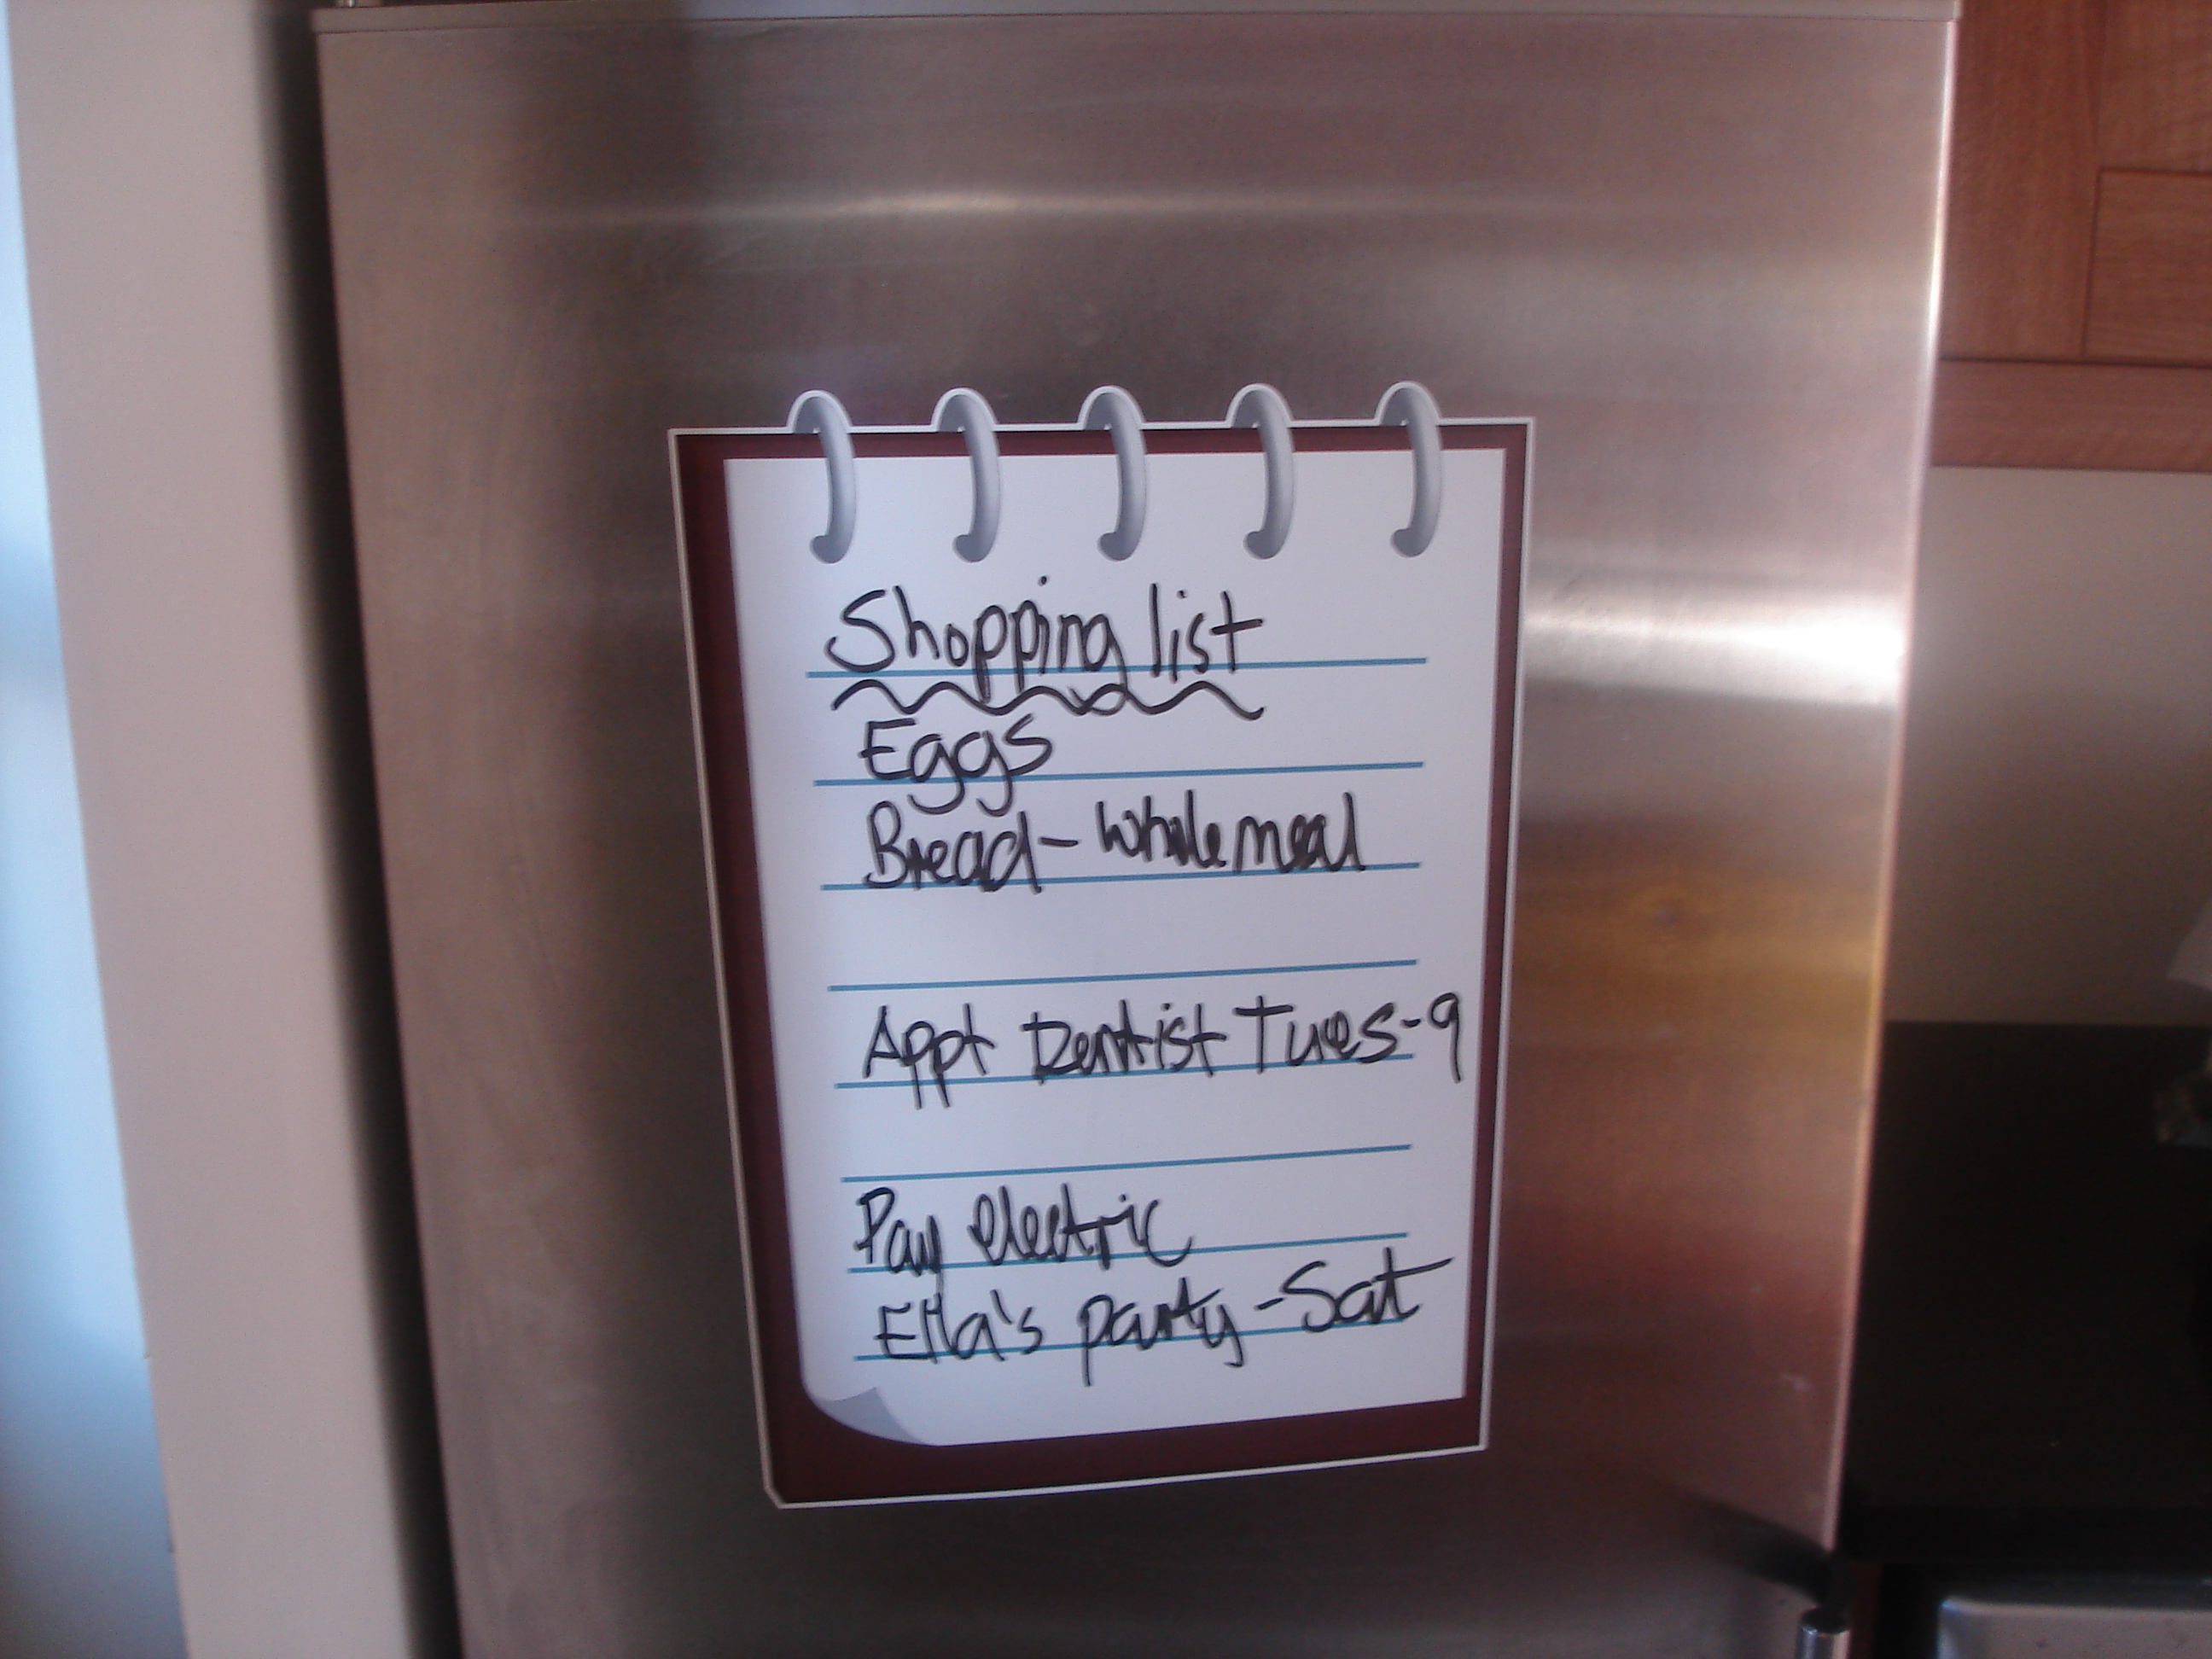 Shopping list
Eggs
Bread - Wholemeal
Appt Dentist Tues - 9
Pay electric
Ella's party - Sat